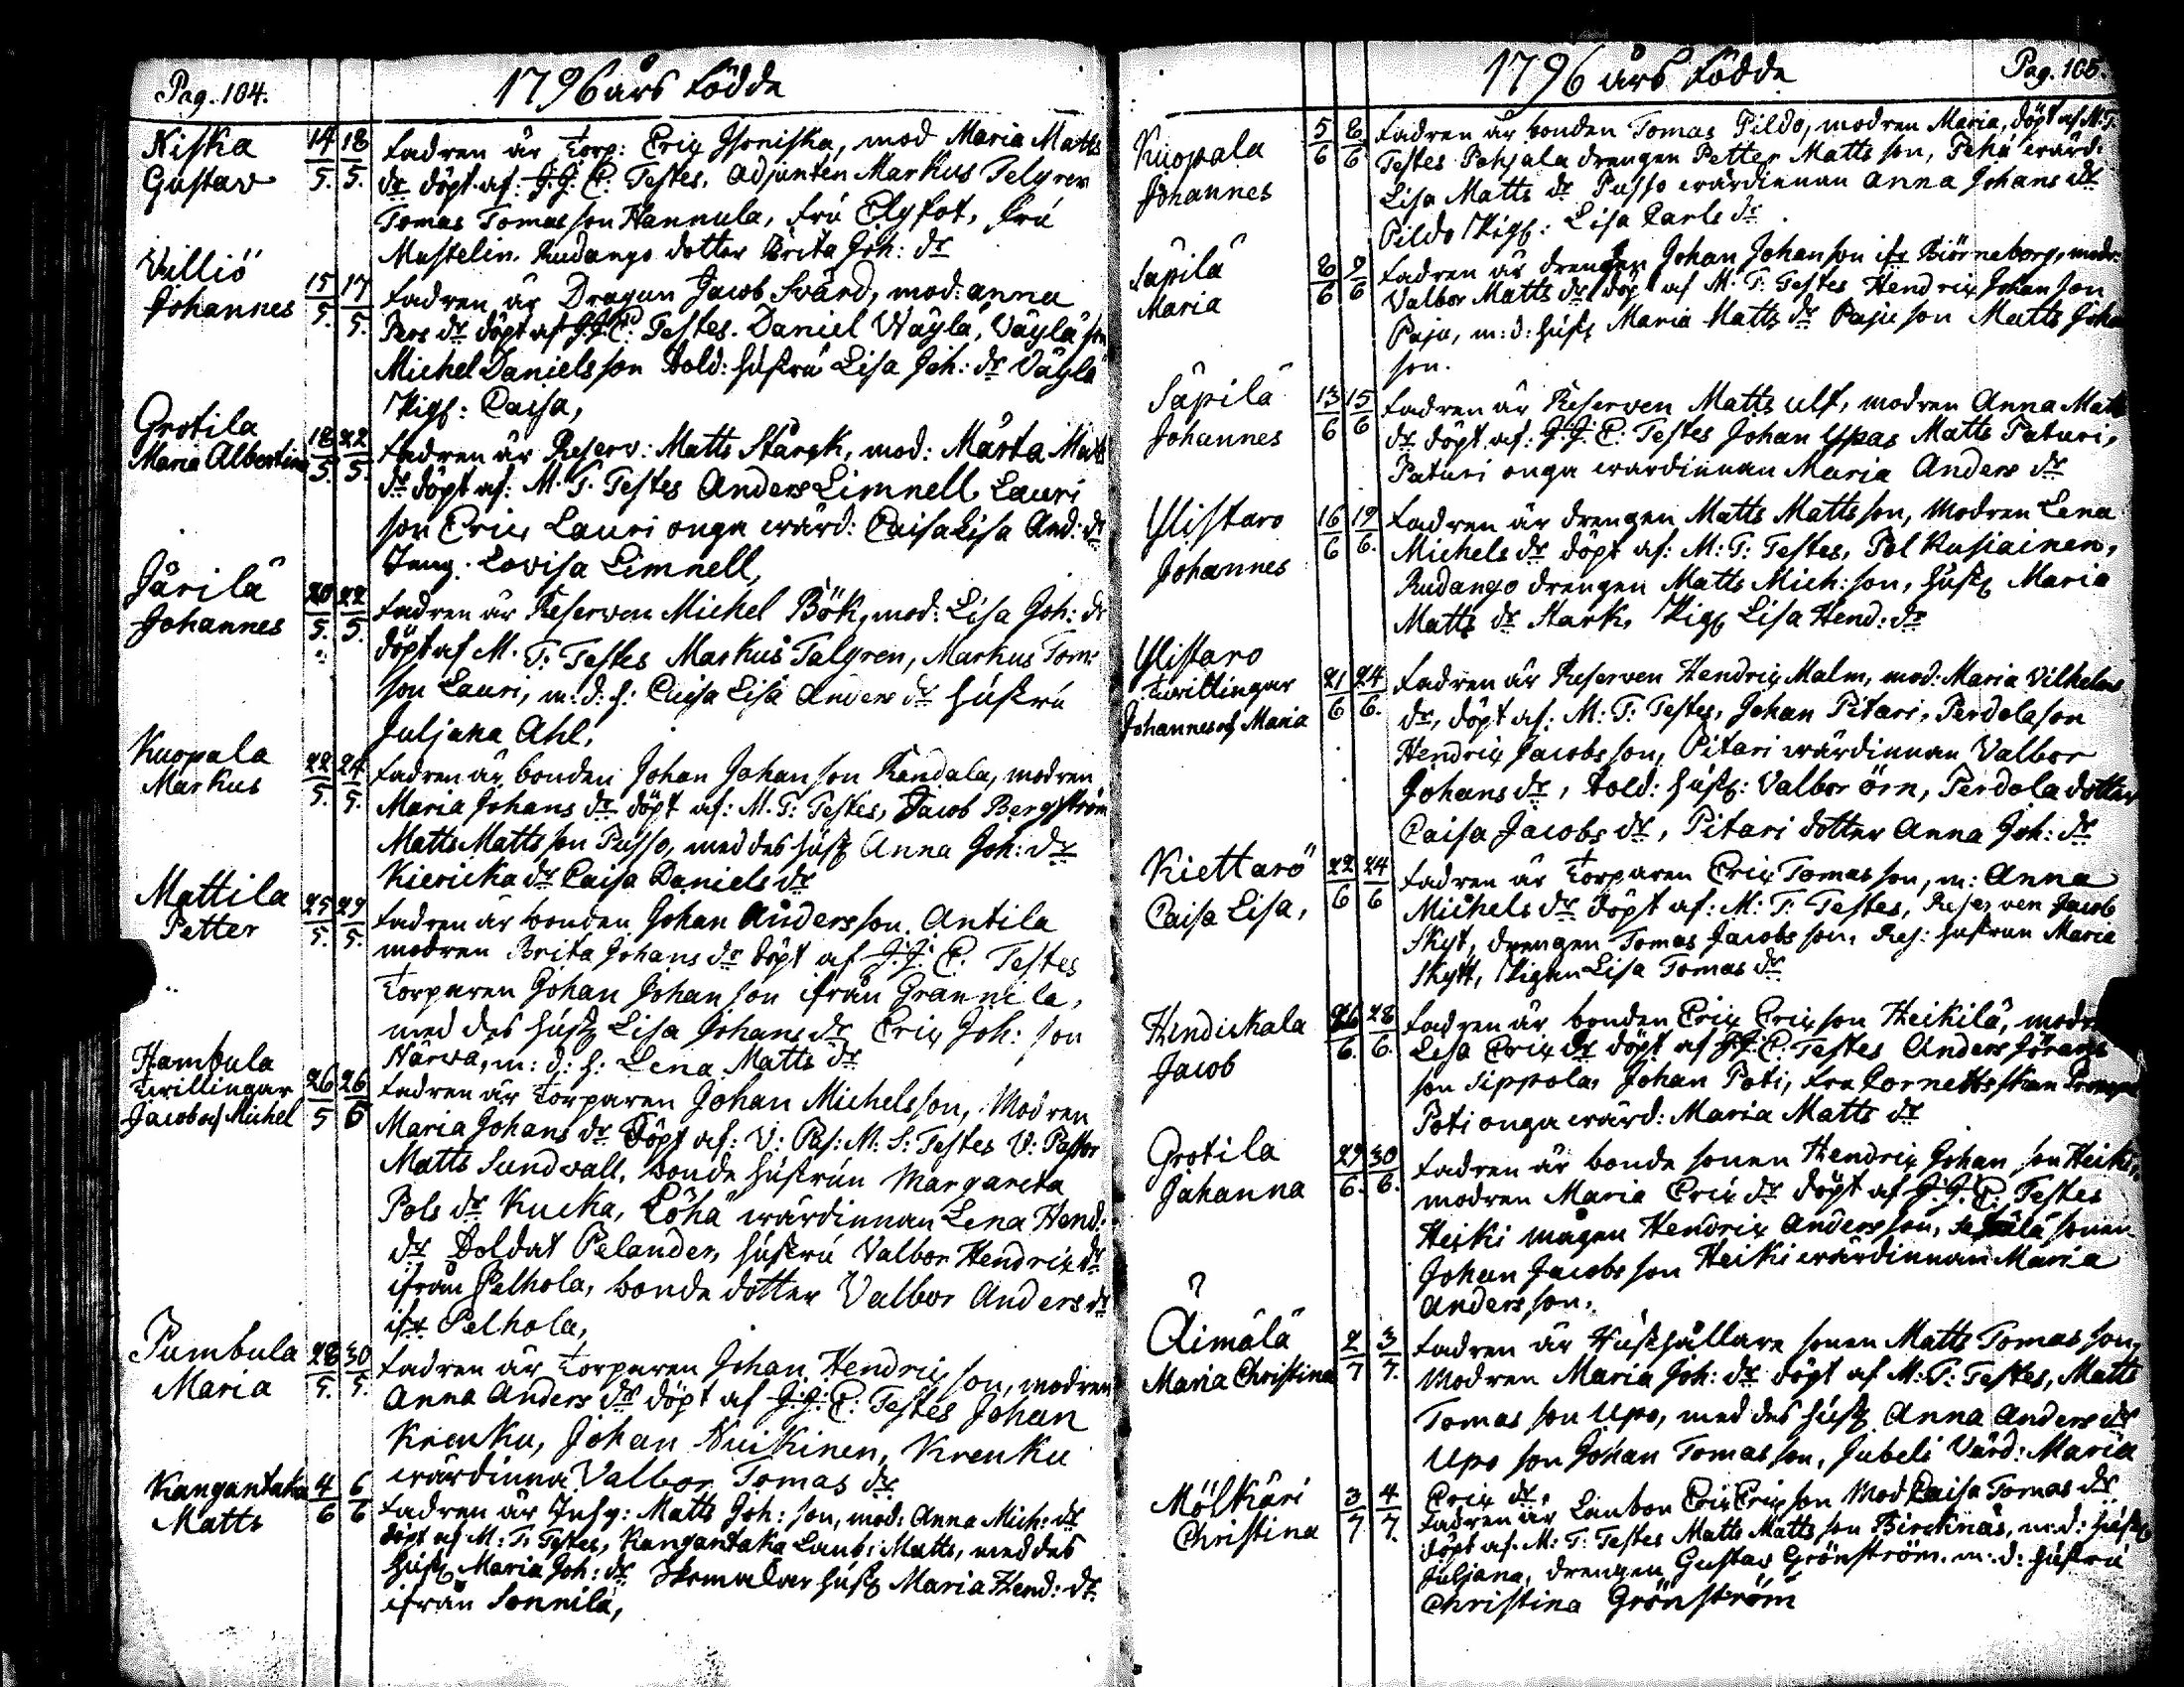 Pag. 104.
1796 års födde
Niska
Gustav
14/5. 18/5.
fadren är Torp: Eric Isoniska, mod Maria Matts
dr döpt af: J. J. C. Testes, Adjunten Markus Telgren
Tomas Tomas son Hannula, fru Elgfot, fru
Mustelin. Rudango dotter Brita Joh: dr
Villiö
Johannes
15/5. 17/5.
fadren är Dragun Jacob Svärd, mod: anna
Pers dr döpt af J. J. C: Testes. Daniel Wäylä, Väylä son
Michel Daniels son Sold: hustru Lisa Joh: dr Väylä
Pig: Caisa,
Grotila
Maria Albertina
18/5. 22/5.
fadren är Reserv: Matts Starck, mod: Märta Matts
dr döpt af: M. T. Testes Anders Limnell, Lauri
son Eric, Lauri onga wärd: Caisa Lisa And: dr
Jung. Lovisa Limnell,
Järilä
Johannes
20/5. 22/5.
fadren är Reserven Michel Bök, mod: Lisa Joh: dr
döpt af M. T. Testes Markus Talgren, Markus Tom:
son Lauri, m: d: h: Caisa Lisa Anders dr hustru
Juljana Ahl,
Kuopala
Markus
22/5. 24/5.
fadren är bonden Johan Johan son Kandala, modren
Maria Johans dr döpt af: M. T: Testes, Jacob Bergström
Matts Matts son Pusso, med des hust Anna Joh: dr
Kiericka dr Caisa Daniels dr
Mattila
Petter
25/5. 29/5.
fadren är bonden Johan Anders son Antila
modren Brita Johans dr döpt af J. J. C. Testes
Torparen Johan Johan son ifrån Grannila,
med des hust Lisa Johans dr Eric Joh: son
Närvä, m: d: h: Lena Matts dr
Hambula
Twillingar
Jacob och Michel
26/5 26/5
fadren är Torparen Johan Michels son, Modren
Maria Johans dr Döpt af: V: Pas: M: S: Testes V: Pastor
Matts Sundwall, bonde hustrun Margareta
Pols dr Kucka, Löhä wärdinnan Lena Hend:
dr Soldat Pelander, hustru Valbor Hendrix dr
ifrån Pelhola, bonde dotter Valbor Anders dr
ifr Pelhola,
Pumbula
Maria
28/5. 30/5.
fadren är Torparen Johan Hendric son, modren
Anna Anders dr döpt af J. J. C: Testes Johan
Krenku, Johan Nuikinen, Krenku
wärdinna Valbor Tomas dr
Kangantaka
Matts
4/6 6/6
fadren är Inhy: Matts Joh: son, mod: Anna Mich: dr
döpt af M. T. Testes, Kangantaka Lanb: Matts, med des
hust Maria Joh: dr Skomakar hust Maria Hend: dr
ifrån Sonnilä,
1796 års födde
Pag. 105.
Kuopala
Johannes
5/6 8/6
fadren är bonden Tomas Pildo, modren Maria, döpt af M: T:
Testes Pohjala drengen Petter Matts son, Pehu wärd:
Lisa Matts dr Pusso wärdinnan Anna Johans dr
Pildo Pig: Lisa Carls dr
Säpilä
Maria
8/6 9/6
fadren är drengen Johan Johan son ifr Biörneborg, modr:
Valbor Matts dr döpt af M: T: Testes Hendrix Johan son
Paju, m: d: hust Maria Matts dr Paju son Matts Joha
son.
Säpilä
Johannes
13/6 15/6
fadren är Reserven Matts Ulf, modren Anna Matts
dr döpt af: J. J. C: Testes Johan Yspas Matts Paturi,
Paturi onga wärdinnan Maria Anders dr
Ylistaro
Johannes
16/6 19/6.
fadren är drengen Matts Matts son, Modren Lena
Michels dr döpt af: M: T: Testes, Pol Kusiainen,
Rudango drengen Matts Mich: son, hust Maria
Matts dr Stark, Pig Lisa Hend: dr
Ylistaro
Twillingar
Johannes och Maria
21/6 24/6.
fadren är Reserven Hendrix Malm, mod: Maria Vilhelms
dr, döpt af: M: T: Testes, Johan Pitari, Perdola son
Hendrix Jacobs son, Pitari wärdinnan Valbor
Johans dr, Sold: hust: Valbor örn, Perdola dotter
Caisa Jacobs dr, Pitari dotter Anna Joh: dr
Kiettarö
Caisa Lisa,
22/6 24/6
fadren är Torparen Eric Tomas son, m: Anna
Michels dr döpt af: M: T: Testes, Reserven Jacob
Skyt, drengen Tomas Jacobs son, Res: hustrun Maria
Skytt, Pigan Lisa Tomas dr
Hendickala
Jacob
26/6. 28/6.
fadren är bonden Eric Eric son Heikilä, modren
Lisa Erix dr döpt af J. J. C: Testes Anders Jörans
son Sippola, Johan Poti, fru Cornettskan
Poti onga wärd: Maria Matts dr
Grotila
Johanna
29/6. 30/6.
fadren är bonde sonen Hendrix Johan son Heiki,
modren Maria Erix dr döpt af J. J. C: Testes
Heiki magen Hendrix Anders son, sonen
Johan Jacobs son Heiki wärdinnan Maria
Anders son.
Äimälä
Maria Christina
2/7 3/7.
fadren är Hushållare sonen Matts Tomas son,
Modren Maria Joh: dr döpt af M: T: Testes, Matts
Tomas son Upo, med des hust Anna Anders dr
Upo son Johan Tomas son, Jubeli Värd: Maria
Erix dr,
Mölkäri
Christina
3/7 4/7.
fadren är Lanbon Eric Eric son Mod Caisa Tomas dr
döpt af: M: T: Testes Matts Matts son Bircknäs, m: d: hust
Juljana, drengen Gustav Grönström, m: d: hustru
Christina Grönström